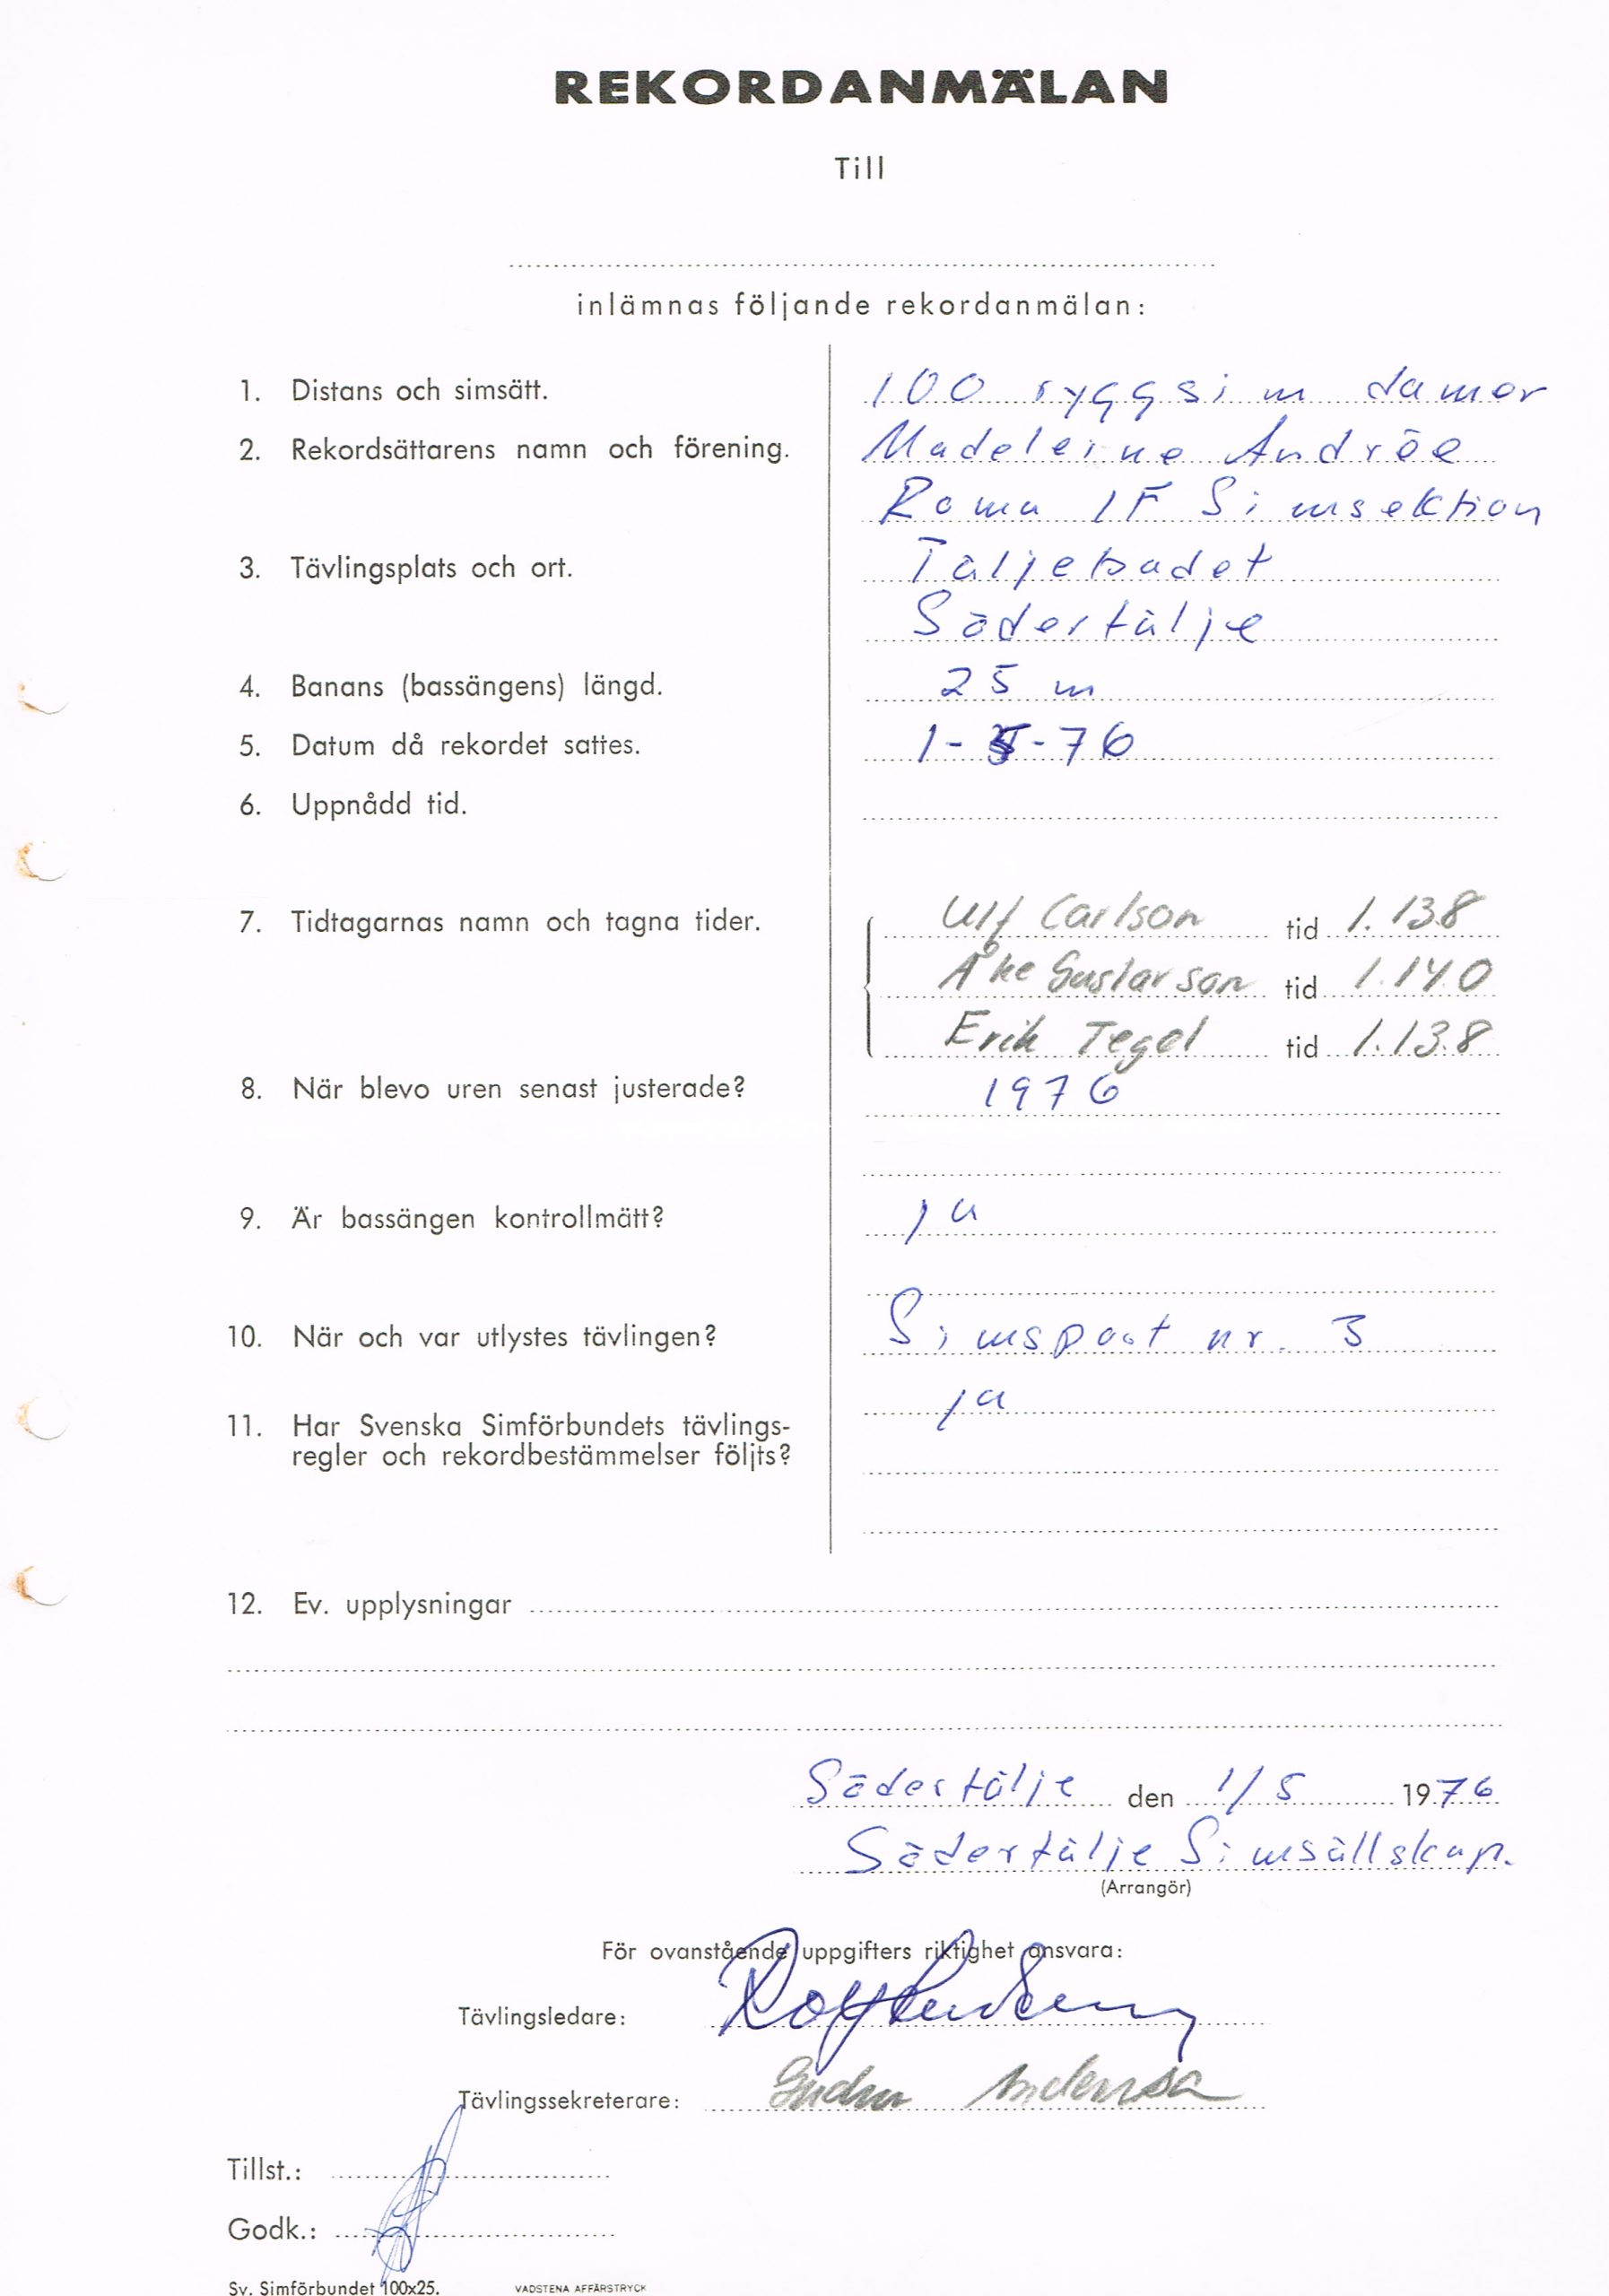 REKORDANMÄLAN
Till
inlämnas följande rekordanmälan:
1. Distans och simsätt. 100 ryggsim damer
2. Rekordsättarens namn och förening. Madeleine Andrée
Roma IF Simsektion
3. Tävlingsplats och ort. Täljebadet
Södertälje
4. Banans (bassängens) längd. 25 m
5. Datum då rekordet sattes. 1-5-76
6. Uppnådd tid.
7. Tidtagarnas namn och tagna tider. Ulf Carlson tid 1.13.8
Åke Gustavson tid 1.14.0
Erik Tegel tid 1.13.8
8. När blevo uren senast justerade? 1976
9. Är bassängen kontrollmätt? ja
10. När och var utlystes tävlingen? Simsport nr. 3
ja
11. Har Svenska Simförbundets tävlings-
regler och rekordbestämmelser följts?
12. Ev. upplysningar
Södertälje den 1/5 1976
Södertälje Simsällskap.
(Arrangör)
För ovanstående uppgifters riktighet ansvara:
Tävlingsledare: Rolf
Tävlingssekreterare:
Tillst.:
Godk.:
Sv. Simförbundet 100x25. VADSTENA AFFÄRSTRYCK